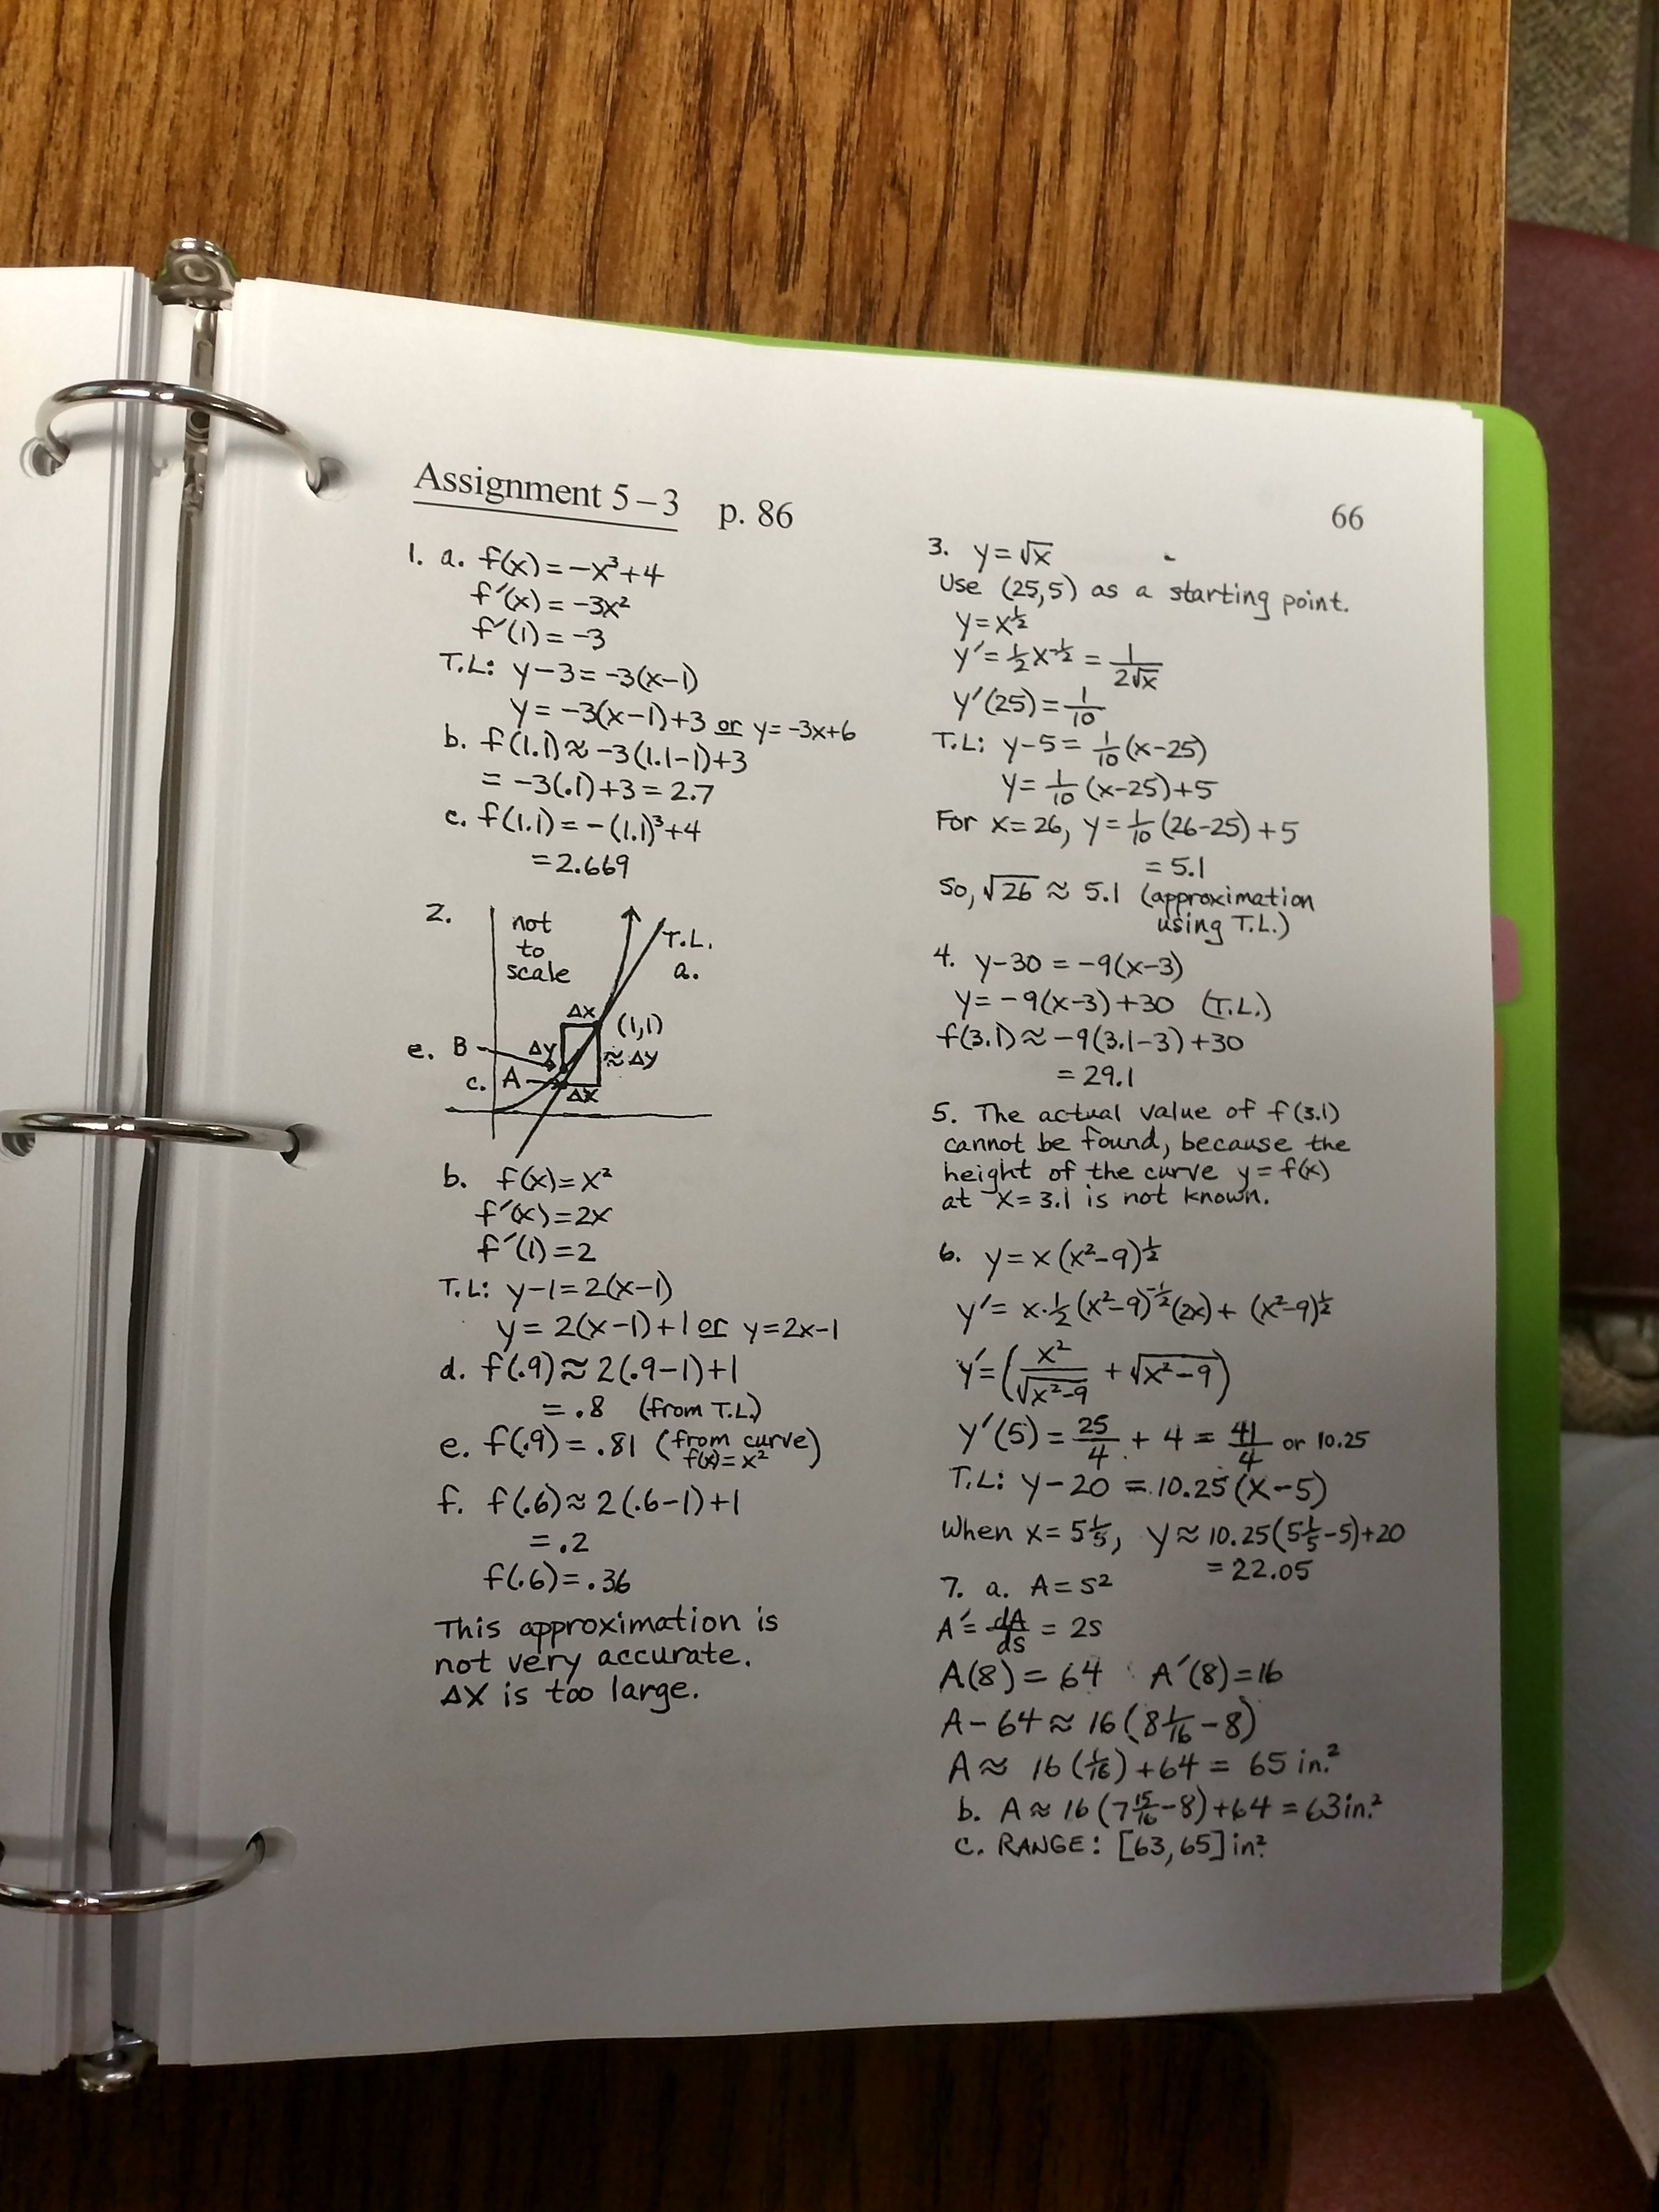 Assignment 5-3 p. 86
66
1. a. f(x) = -x³+4
f′(x) = -3x²
f′(1) = -3
T.L: y-3 = -3(x-1)
y = -3(x-1)+3 or y=-3x+6
b. f(1.1) ≈ -3(1.1-1)+3
= -3(.1)+3 = 2.7
c. f(1.1) = -(1.1)³+4
= 2.669
2. not
to
scale
T.L.
a.
Δx
(1,1)
e. B
Δy
≈ Δy
c. A
Δx
b. f(x) = x²
f′(x) = 2x
f′(1) = 2
T.L: y-1 = 2(x-1)
y = 2(x-1)+1 or y=2x-1
d. f(.9) ≈ 2(.9-1)+1
= .8 (from T.L.)
e. f(.9) = .81 (from curve)
f(x)=x²
f. f(.6) ≈ 2(.6-1)+1
= .2
f(.6) = .36
This approximation is
not very accurate.
Δx is too large.
3. y = √x
Use (25,5) as a starting point.
y = x^½
y′ = ½x^-½ = 1/(2√x)
y′(25) = 1/10
T.L: y-5 = 1/10 (x-25)
y = 1/10 (x-25)+5
For x=26, y = 1/10 (26-25)+5
= 5.1
So, √26 ≈ 5.1 (approximation
using T.L.)
4. y-30 = -9(x-3)
y = -9(x-3)+30 (T.L.)
f(3.1) ≈ -9(3.1-3)+30
= 29.1
5. The actual value of f(3.1)
cannot be found, because the
height of the curve y=f(x)
at x=3.1 is not known.
6. y = x(x²-9)^½
y′ = x·½(x²-9)^-½(2x) + (x²-9)^½
y′ = (x²/√(x²-9) + √(x²-9))
y′(5) = 25/4 + 4 = 41/4 or 10.25
T.L: y-20 = 10.25(x-5)
When x = 5⅕, y ≈ 10.25(5⅕-5)+20
= 22.05
7. a. A = s²
A′ = dA/ds = 2s
A(8) = 64 A′(8) = 16
A-64 ≈ 16(8 1/16 - 8)
A ≈ 16(1/16)+64 = 65 in.²
b. A ≈ 16(7 15/16 - 8)+64 = 63 in.²
c. RANGE: [63,65] in.²